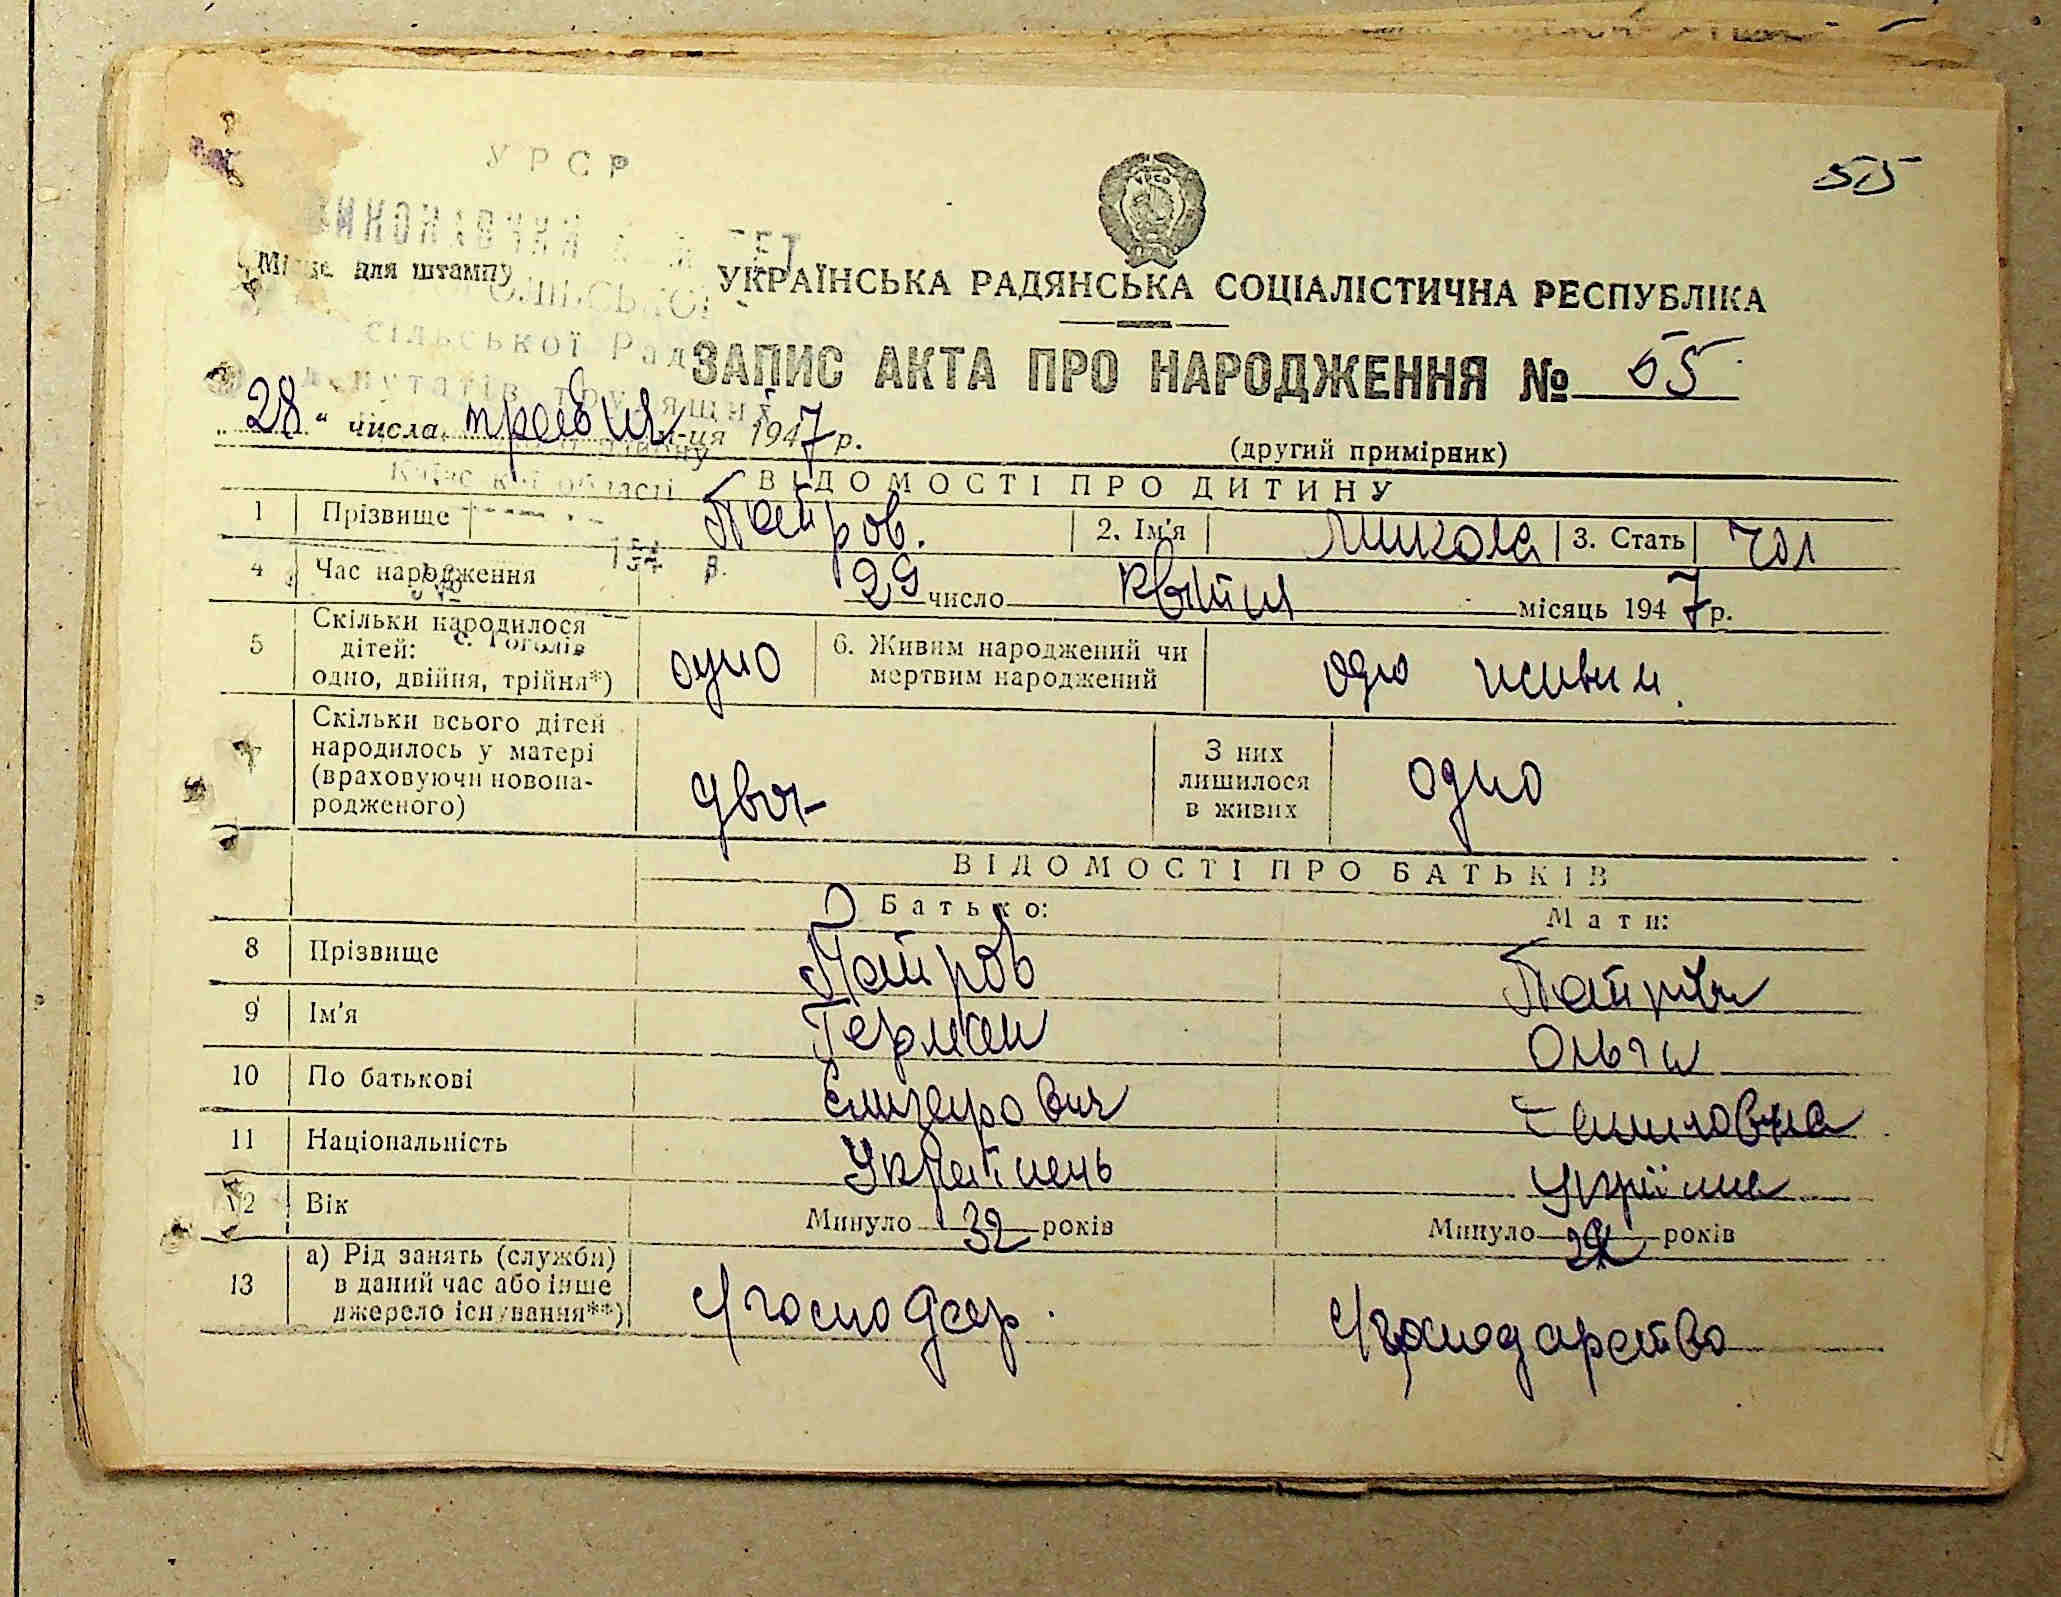 55
УРСР
ВИКОНАВЧИЙ КОМІТЕТ
Місце для штампу
УКРАЇНСЬКА РАДЯНСЬКА СОЦІАЛІСТИЧНА РЕСПУБЛІКА
сільської Рад
депутатів трудящих
ЗАПИС АКТА ПРО НАРОДЖЕННЯ № 55
„28“ числа травня м-ця 1947 р.
(другий примірник)
Київської області
ВІДОМОСТІ ПРО ДИТИНУ
1 Прізвище Петров. 2. Ім'я Микола 3. Стать чол
4 Час народження 29 число квітня місяць 1947 р.
с. Гоголів
5 Скільки народилося дітей: одно, двійня, трійня*) одно 6. Живим народжений чи мертвим народжений одно живим.
7 Скільки всього дітей народилось у матері (враховуючи новона-родженого) двоє З них лишилося в живих одно
ВІДОМОСТІ ПРО БАТЬКІВ
Батько: Мати:
8 Прізвище Петров
9 Ім'я Герман Ольга
10 По батькові
11 Національність Українець
12 Вік Минуло 32 років Минуло років
13 а) Рід занять (служби) в даний час або інше джерело існування**) с/господар. с/господарство